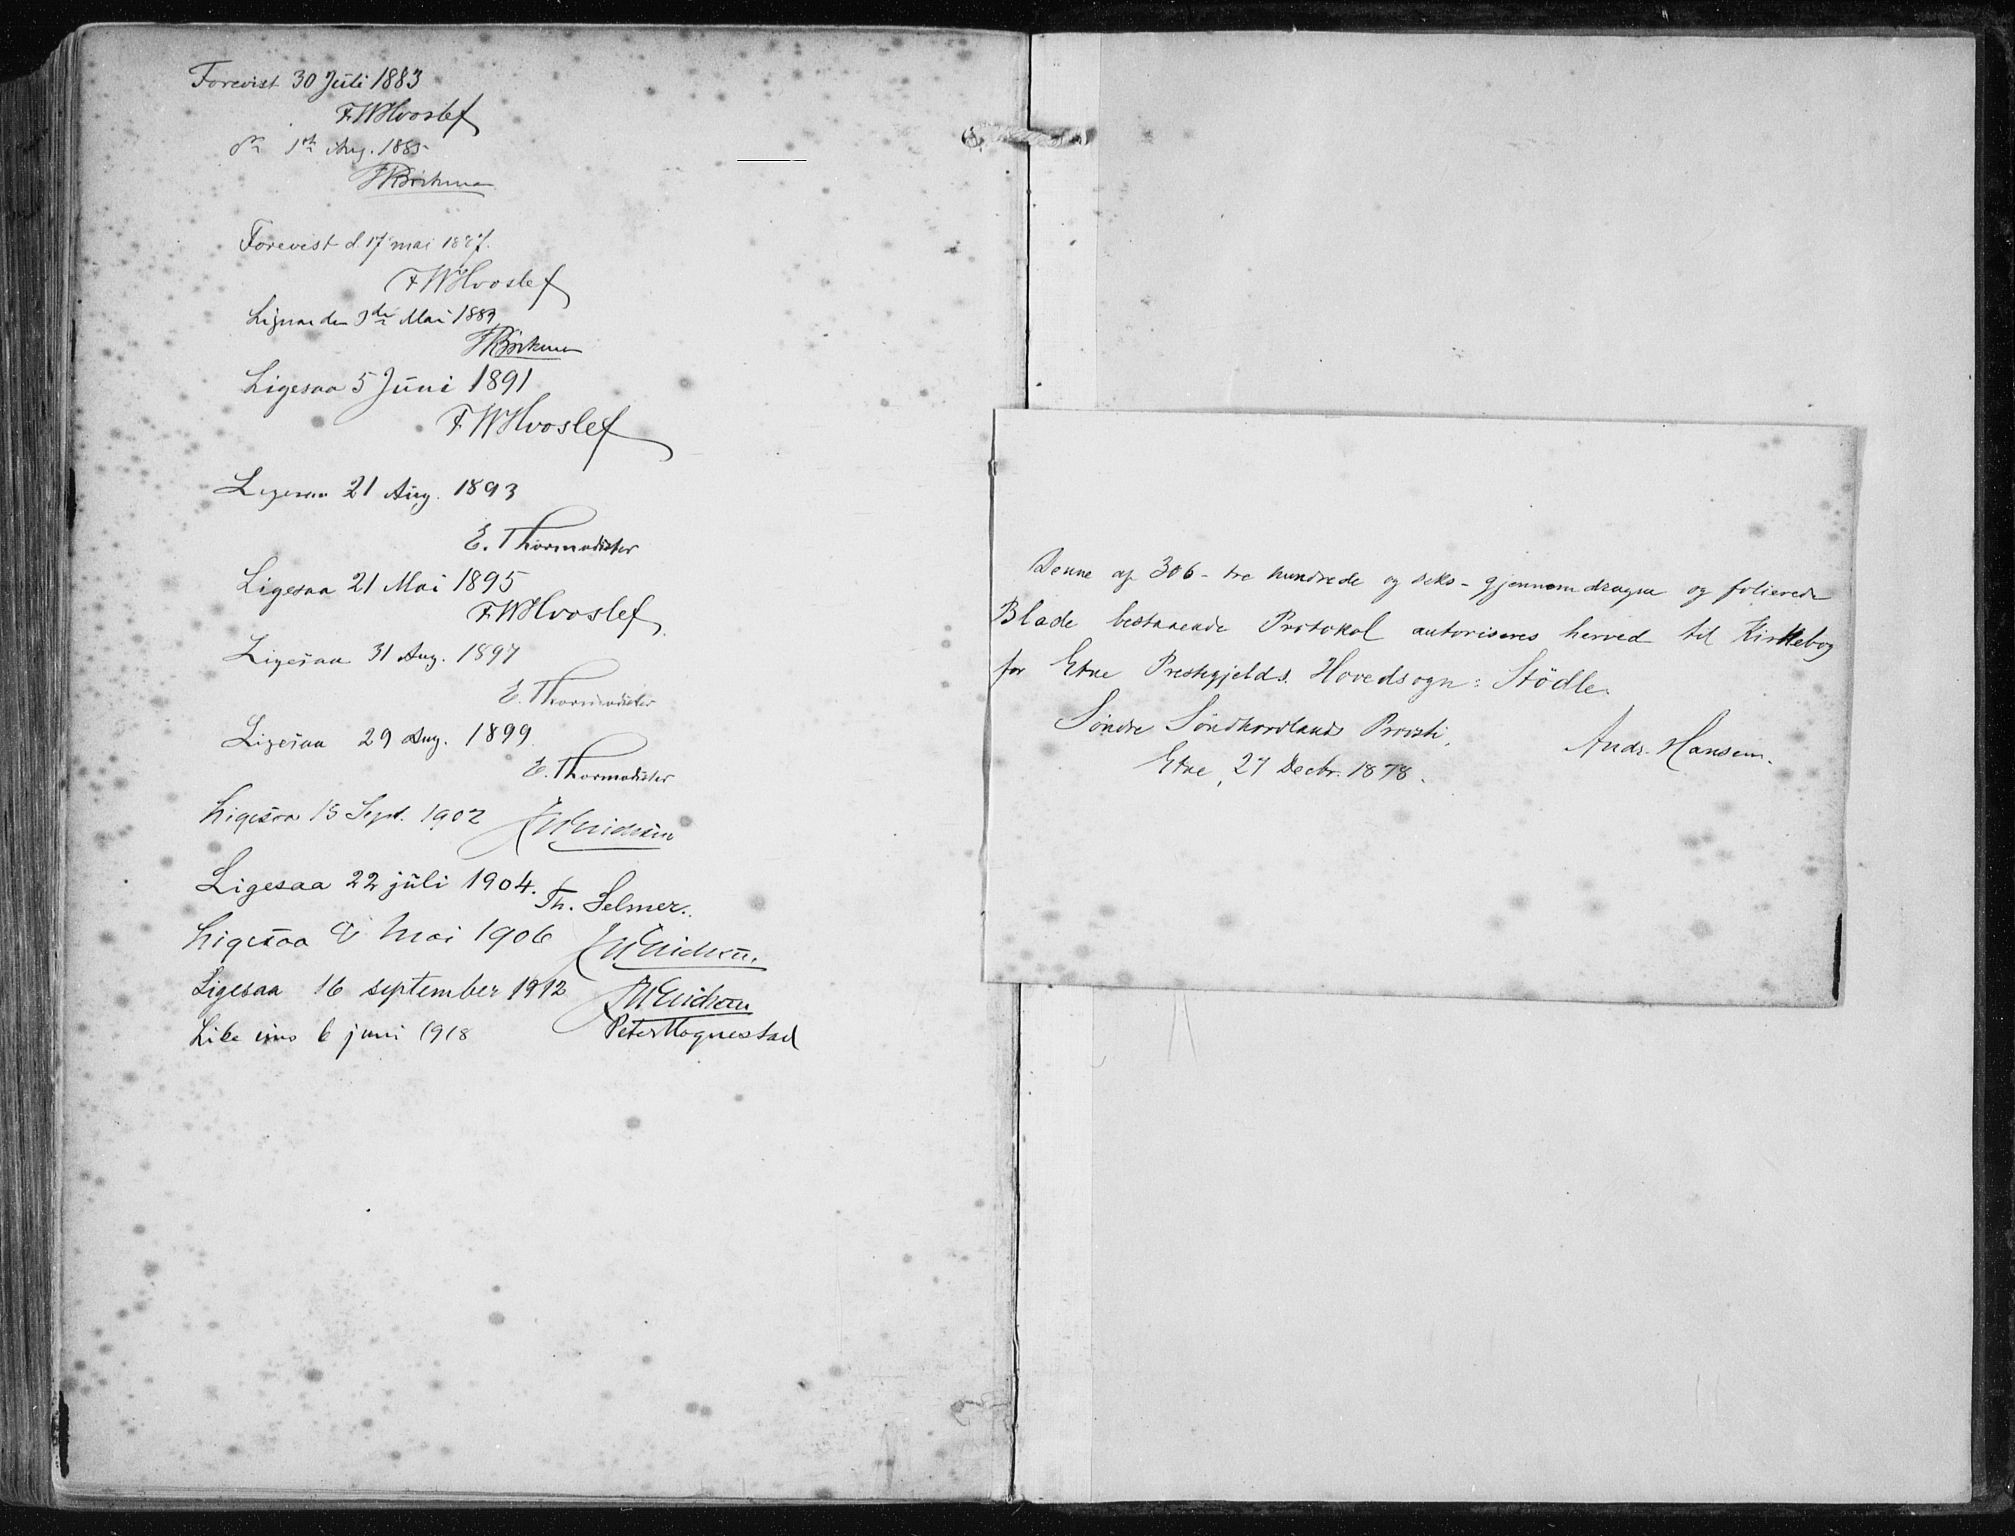 Forevist 30 Juli 1883
F.W Hvoslef
do 1ste Aug. 1885
FRBöckman
Forevist d. 17 mai 1887.
F.W Hvoslef
Ligesaa den 3die Mai 1889
FRBöckman
Ligesaa 5 Juni 1891
F.W Hvoslef
Ligesaa 21 Aug. 1893
E. Thormodsæter
Ligesaa 21 Mai 1895
F.W Hvoslef
Ligesaa 31 Aug. 1897
E. Thormodsæter
Ligesaa 29 Aug. 1899
E. Thormodsæter
Ligesaa 15 Sept. 1902
Ligesaa 22 juli 1904. Th. Selmer.
Ligesaa Mai 1906
Ligesaa 16 september 1912
Like eins 6 juni 1918 Peter Hognestad
Denne af 306 - tre hundrede og seks - gjennemdragne og folierede
Blade bestaaende Protokol autoriseres herved til Kirkebog
for Etne Prestegjelds Hovedsogn: Stödle.
Söndre Söndhordlands Provsti,
Etne, 27 Decbr. 1878.
Andr. Hansen.